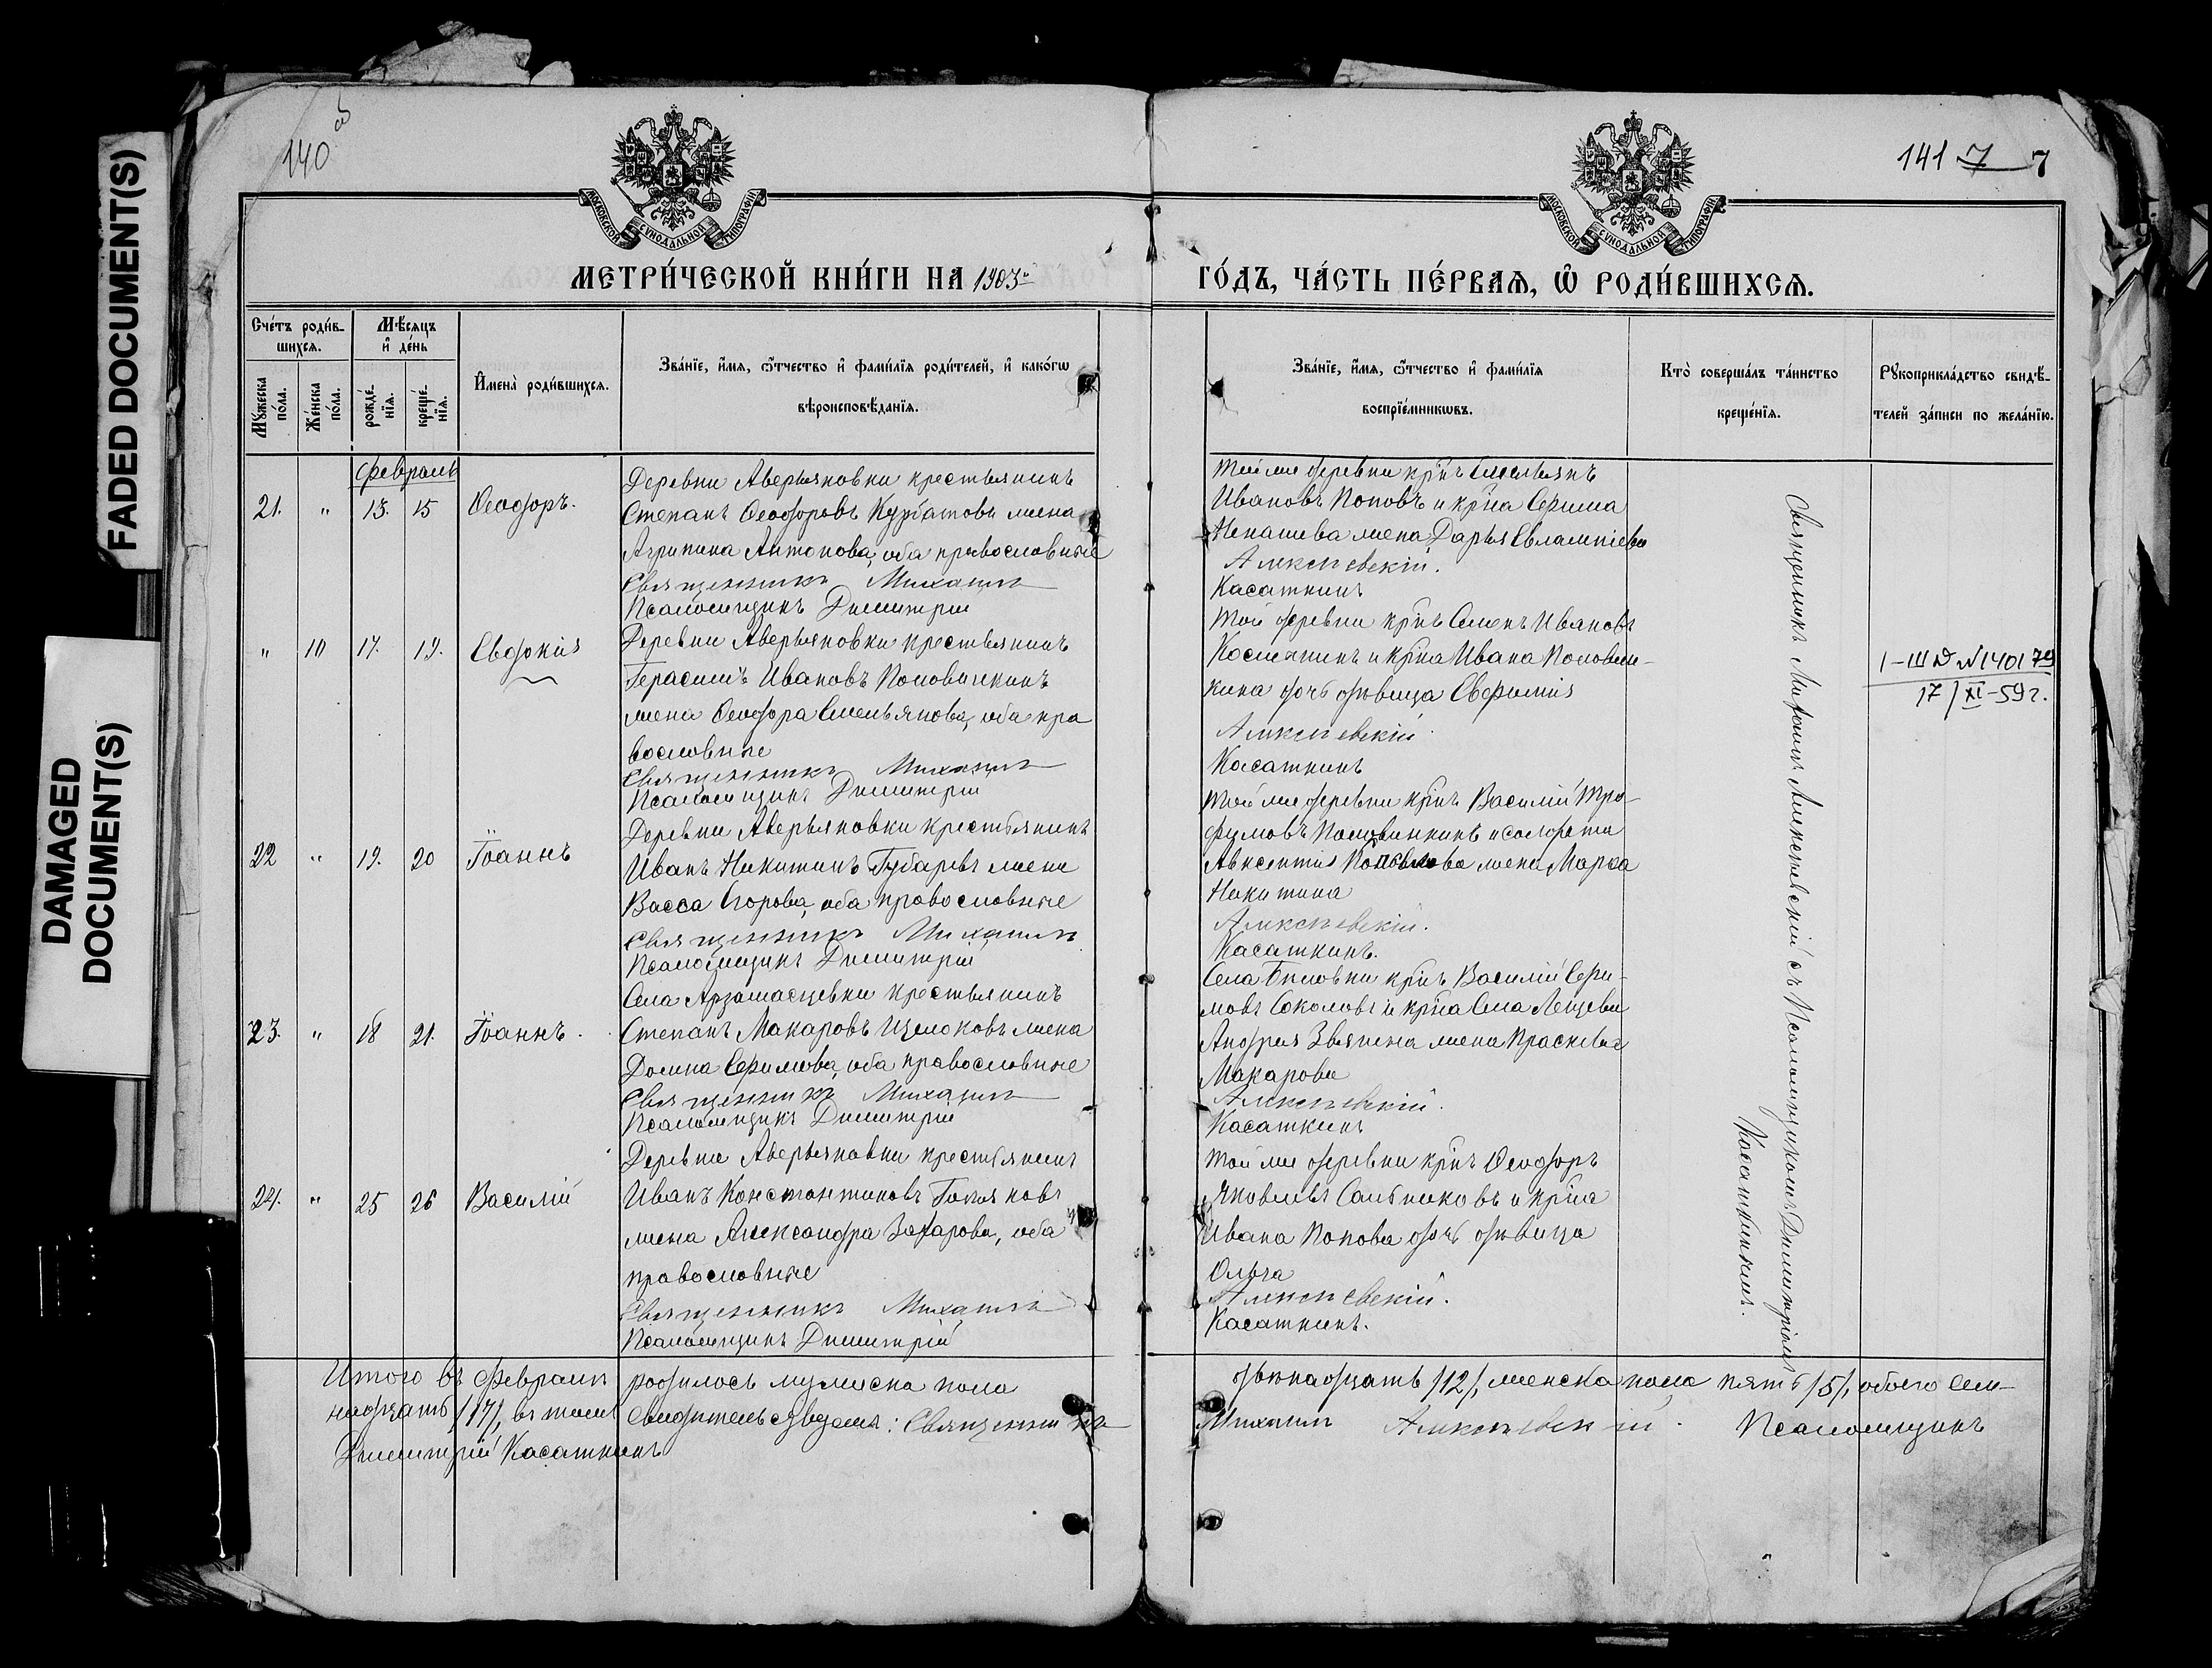 FADED DOCUMENT(S)
DAMAGED
DOCUMENT(S)
140 об
141 7 7
МОСКОВСКОЙ СѴНОДАЛЬНОЙ ТИПОГРАФІИ
МОСКОВСКОЙ СѴНОДАЛЬНОЙ ТИПОГРАФІИ
МЕТРИ́ЧЕСКОЙ КНИ́ГИ НА 1903й
ГО́ДЪ, ЧА́СТЬ ПЕ́РВАѦ, Ѡ҆ РОДИ́ВШИХСѦ.
Сче́тъ роди́в-
шихсѧ.
Мꙋ́жеска по́ла.
Же́нска по́ла.
Мѣ́сѧцъ
и҆ де́нь
рожде́-нїѧ.
креще́-нїѧ.
И҆мена̀ роди́вшихсѧ.
Зва́нїе, и҆́мѧ, ѻ҆́тчество и҆ фамилїѧ роди́телей, и҆ како́гѡ
вѣроисповѣ́данїѧ.
Зва́нїе, и҆́мѧ, ѻ҆́тчество и҆ фами́лїѧ
воспрїе́мникѡвъ.
Кто̀ соверша́лъ та́инство
креще́нїѧ.
Рꙋкоприкла́дство свидѣ́-
телей за́писи по жела́нїю.
Февраль
21. " 13. 15 Ѳеодоръ.
Деревни Аверьяновки крестьянинъ
Степанъ Ѳеодоровъ Курбатовъ жена
Агрипина Антонова, оба православные
Священникъ Михаилъ
Псаломщикъ Димитрій
Той же деревни кр҃нъ Емельянъ
Ивановъ Поповъ и кр҃на Ефима
Ненашева жена Дарья Евлампіева
Алексѣевскій.
Касаткинъ
" 10 17. 19. Евдокія
Деревни Аверьяновки крестьянинъ
Герасимъ Ивановъ Половинкинъ
жена Ѳеодора Емельянова, оба пра
вославные
Священникъ Михаилъ
Псаломщикъ Димитрій
Той деревни кр҃нъ Семенъ Ивановъ
Космынинъ и кр҃на Ивана Половин-
кина дочь дѣвица Евфимія
Алексѣевскій.
Касаткинъ
1-Ш № 140179
17/XI-59г.
22 " 19. 20 Іоаннъ
Деревни Аверьяновки крестьянинъ
Иванъ Никитинъ Губаревъ жена
Васса Егорова, оба православные
Священникъ Михаилъ
Псаломщикъ Димитрій
Той же деревни кр҃нъ Василій Тро-
фимовъ Половинкинъ и солдата
Авксентія жена Марѳа
Никитина
Алексѣевскій.
Касаткинъ.
23. " 18 21. Іоаннъ.
Села Арзамасцевки крестьянинъ
Степанъ Макаровъ Щелоковъ жена
Домна Ефимова, оба православные
Священникъ Михаилъ
Псаломщикъ Димитрій
Села кр҃нъ Василій Ефи-
мовъ Соколовъ и кр҃на Села
Андрея Звягина жена Праскевья
Макарова
Алексѣевскій.
Касаткинъ
24. " 25 26 Василій
Деревни Аверьяновки крестьянинъ
Иванъ Константиновъ
жена Александра Захарова, оба
православные
Священникъ Михаилъ
Псаломщикъ Димитрій
Той же деревни кр҃нъ Ѳеодоръ
Яковлевъ Сальниковъ и кр҃на
Ивана Попова дочь дѣвица
Ольга
Алексѣевскій.
Касаткинъ.
Священникъ Михаилъ Алексѣевскій съ Псаломщикомъ Димитріемъ
Касаткинымъ.
Итого въ Февралѣ родилось мужеска пола двѣнадцать /12/, женска пола пять /5/, обоего сем-
надцать /17/, въ томъ свидѣтельствуемъ: Священникъ Михаилъ Алексѣевскій. Псаломщикъ
Димитрій Касаткинъ